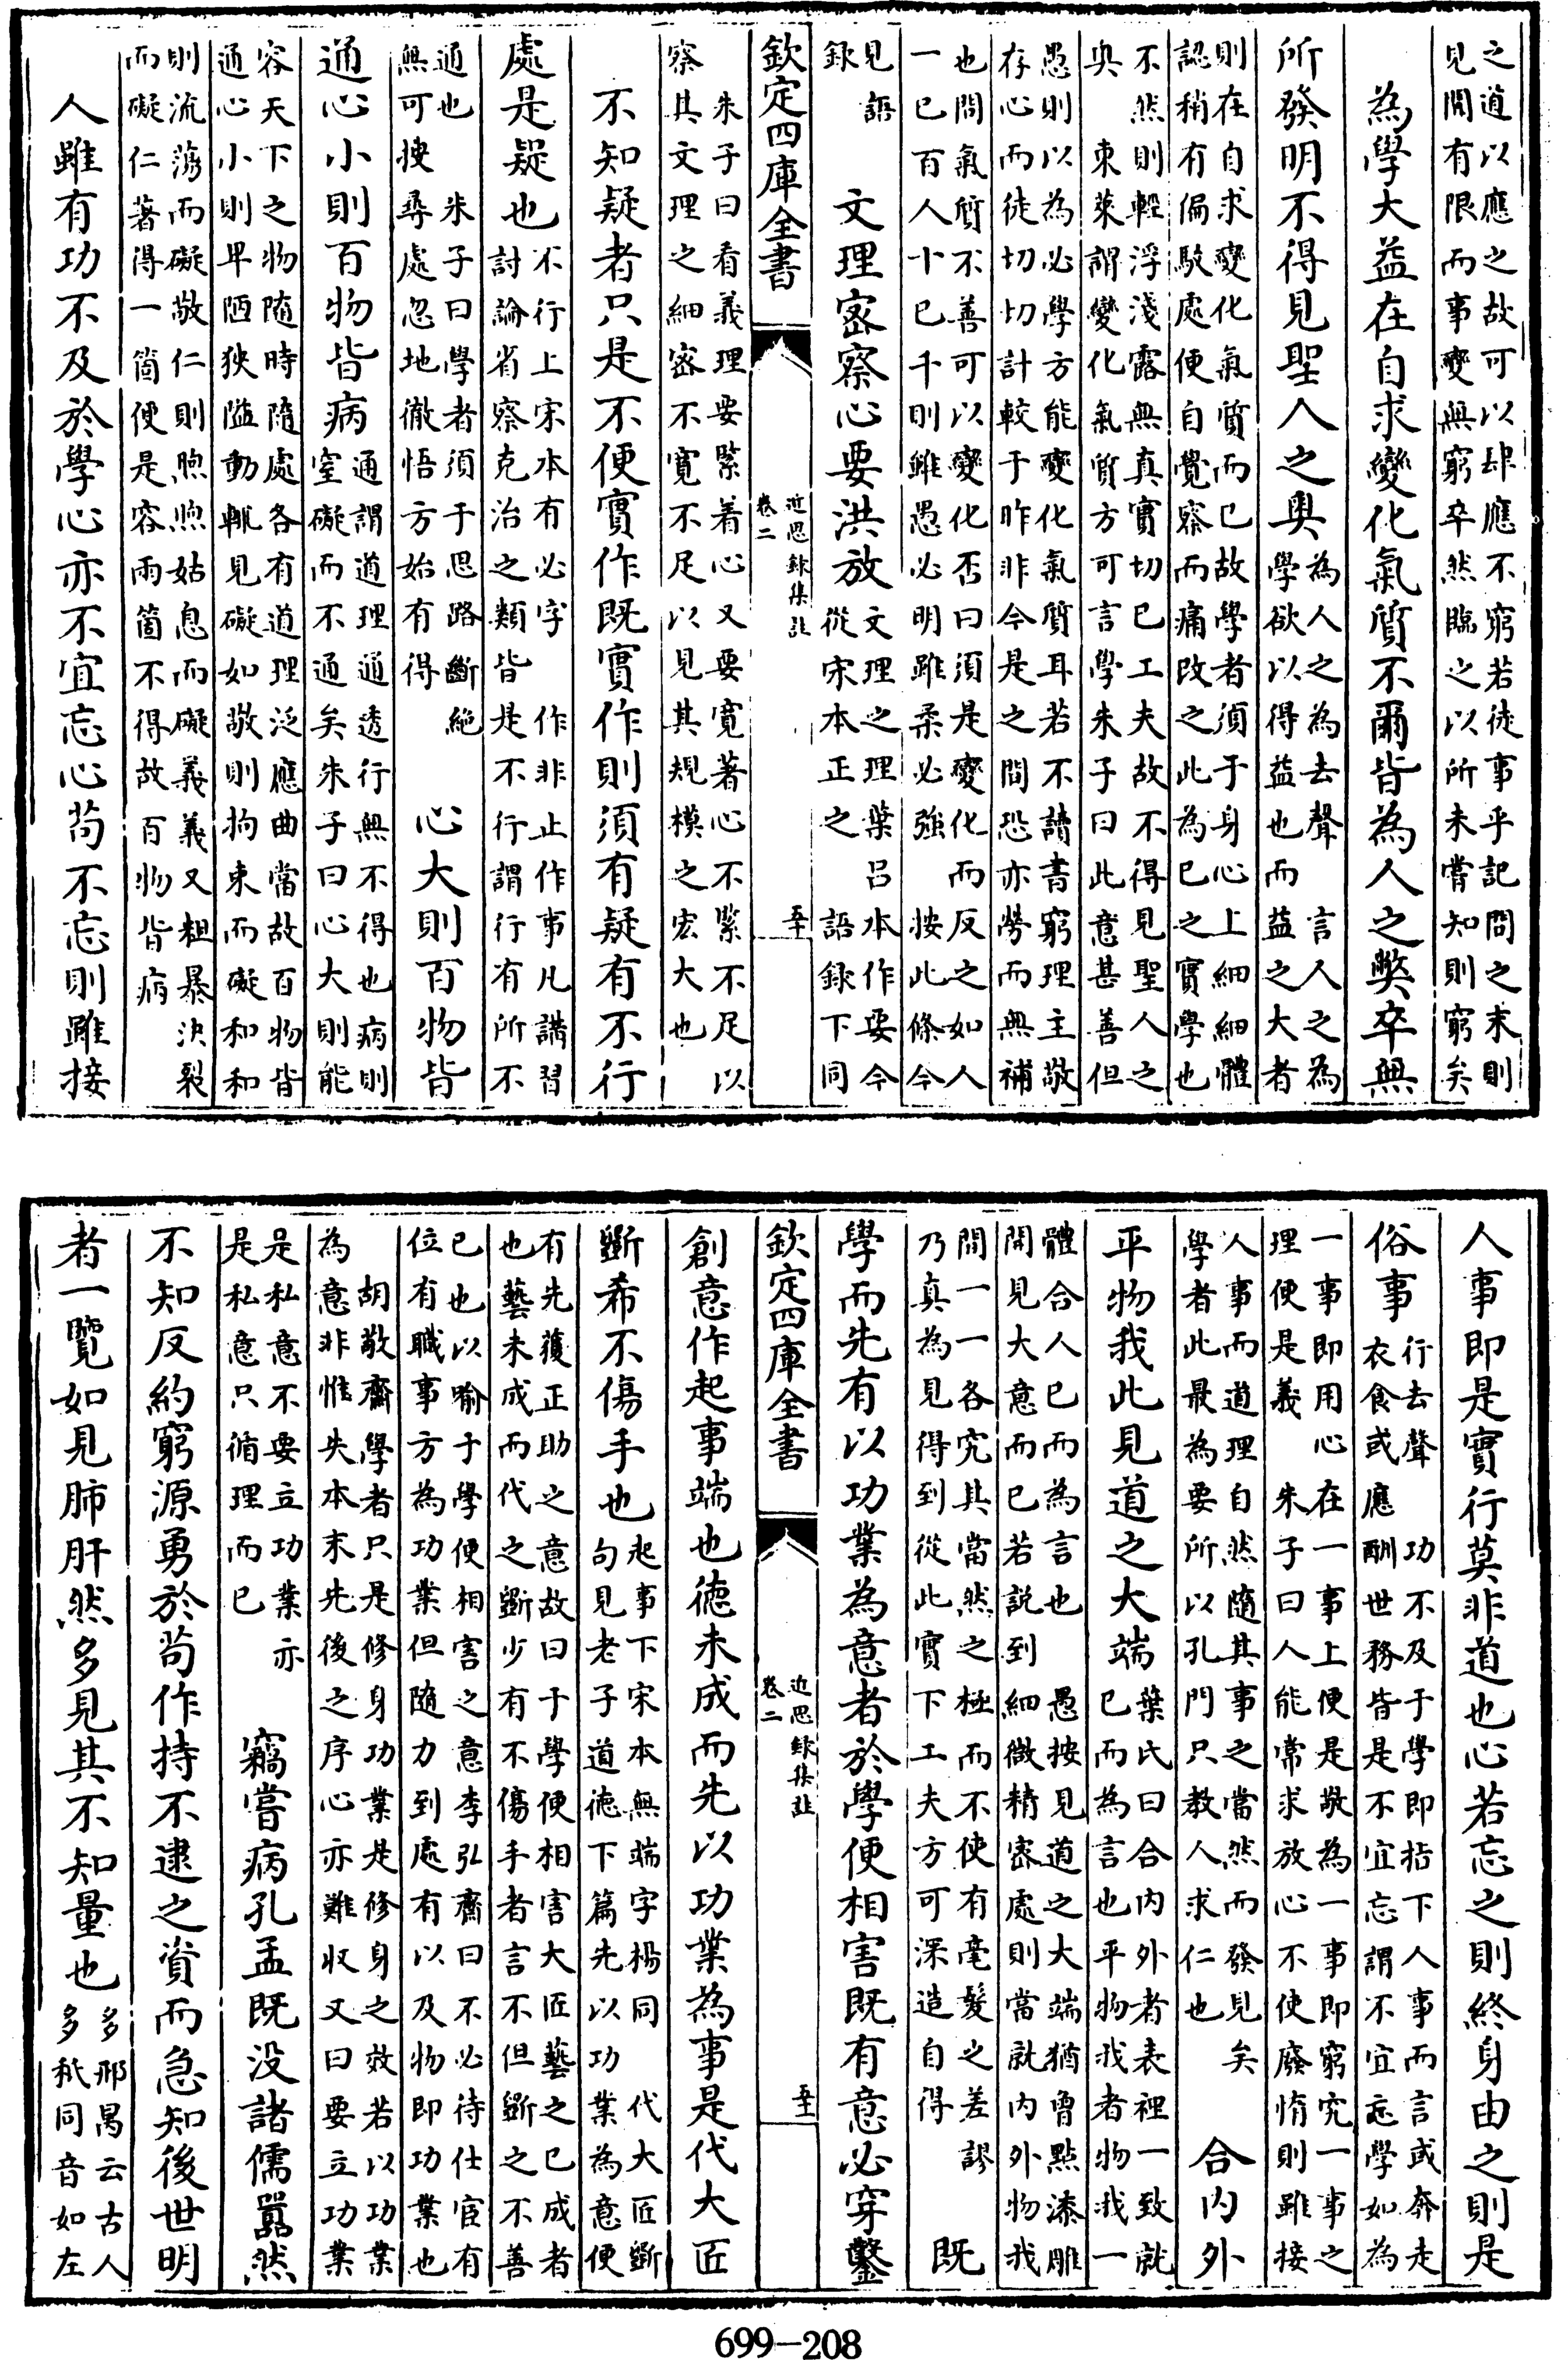 之道以應之故可以肆應不窮若徒事乎記問之末則
見聞有限而事變無窮卒然臨之以所未嘗知則窮矣
為學大益在自求變化氣質不爾皆為人之弊卒無
所發明不得見聖人之奧
為人之為去聲 言人之為
學欲以得益也而益之大者
則在自求變化氣質而已故學者須于身心上細細體
認稍有偏駁處便自覺察而痛改之此為已之實學也
不然則輕浮淺露無真實切已工夫故不得見聖人之
奧 東萊謂變化氣質方可言學朱子曰此意甚善但
愚則以為必學方能變化氣質耳若不讀書窮理主敬
存心而徒切切計較于昨非今是之間恐亦勞而無補
也問氣質不善可以變化否曰須是變化而反之如人
一已百人十已千則雖愚必明雖柔必強 按此條今
見語
錄
文理密察心要洪放
文理之理葉呂本作要今
從宋本正之 語錄下同
欽定四庫全書
近思錄集註
卷二
五十
朱子曰看義理要緊着心又要寬著心不緊不足以
察其文理之細密不寬不足以見其規模之宏大也
不知疑者只是不便實作既實作則須有疑有不行
處是疑也
不行上宋本有必字 作非止作事凡講習
討論省察克治之類皆是不行謂行有所不
通也 朱子曰學者須于思路斷絶
無可搜尋處忽地徹悟方始有得
心大則百物皆
通心小則百物皆病
通謂道理通透行無不得也病則
窒礙而不通矣朱子曰心大則能
容天下之物隨時隨處各有道理泛應曲當故百物皆
通心小則卑陋狹隘動輒見礙如敬則拘束而礙和和
則流蕩而礙敬仁則煦煦姑息而礙義義又粗暴決裂
而礙仁著得一箇便是容兩箇不得故百物皆病
人雖有功不及於學心亦不宜忘心苟不忘則雖接
人事即是實行莫非道也心若忘之則終身由之則是
俗事
行去聲 功不及于學即指下人事而言或奔走
衣食或應酬世務皆是不宜忘謂不宜忘學如為
一事即用心在一事上便是敬為一事即窮究一事之
理便是義 朱子曰人能常求放心不使廢惰則雖接
人事而道理自然隨其事之當然而發見矣
學者此最為要所以孔門只教人求仁也
合內外
平物我此見道之大端
葉氏曰合內外者表裡一致就
已而為言也平物我者物我一
體合人已而為言也 愚按見道之大端猶曾點漆雕
開見大意而已若説到細微精密處則當就內外物我
間一一各究其當然之極而不使有毫髮之差謬
乃真為見得到從此實下工夫方可深造自得
既
學而先有以功業為意者於學便相害既有意必穿鑿
欽定四庫全書
近思錄集註
卷二
五十一
創意作起事端也德未成而先以功業為事是代大匠
斲希不傷手也
起事下宋本無端字楊同 代大匠斲
句見老子道德下篇先以功業為意便
有先獲正助之意故曰于學便相害大匠藝之已成者
也藝未成而代之斲少有不傷手者言不但斲之不善
已也以喻于學便相害之意李弘齋曰不必待仕宦有
位有職事方為功業但隨力到處有以及物即功業也
胡敬齋學者只是修身功業是修身之效若以功業
為意非惟失本末先後之序心亦難收又曰要立功業
是私意不要立功業亦
是私意只循理而已
竊嘗病孔孟既沒諸儒囂然
不知反約窮源勇於苟作持不逮之資而急知後世明
者一覽如見肺肝然多見其不知量也
多邢昺云古人
多秖同音如左
699-208